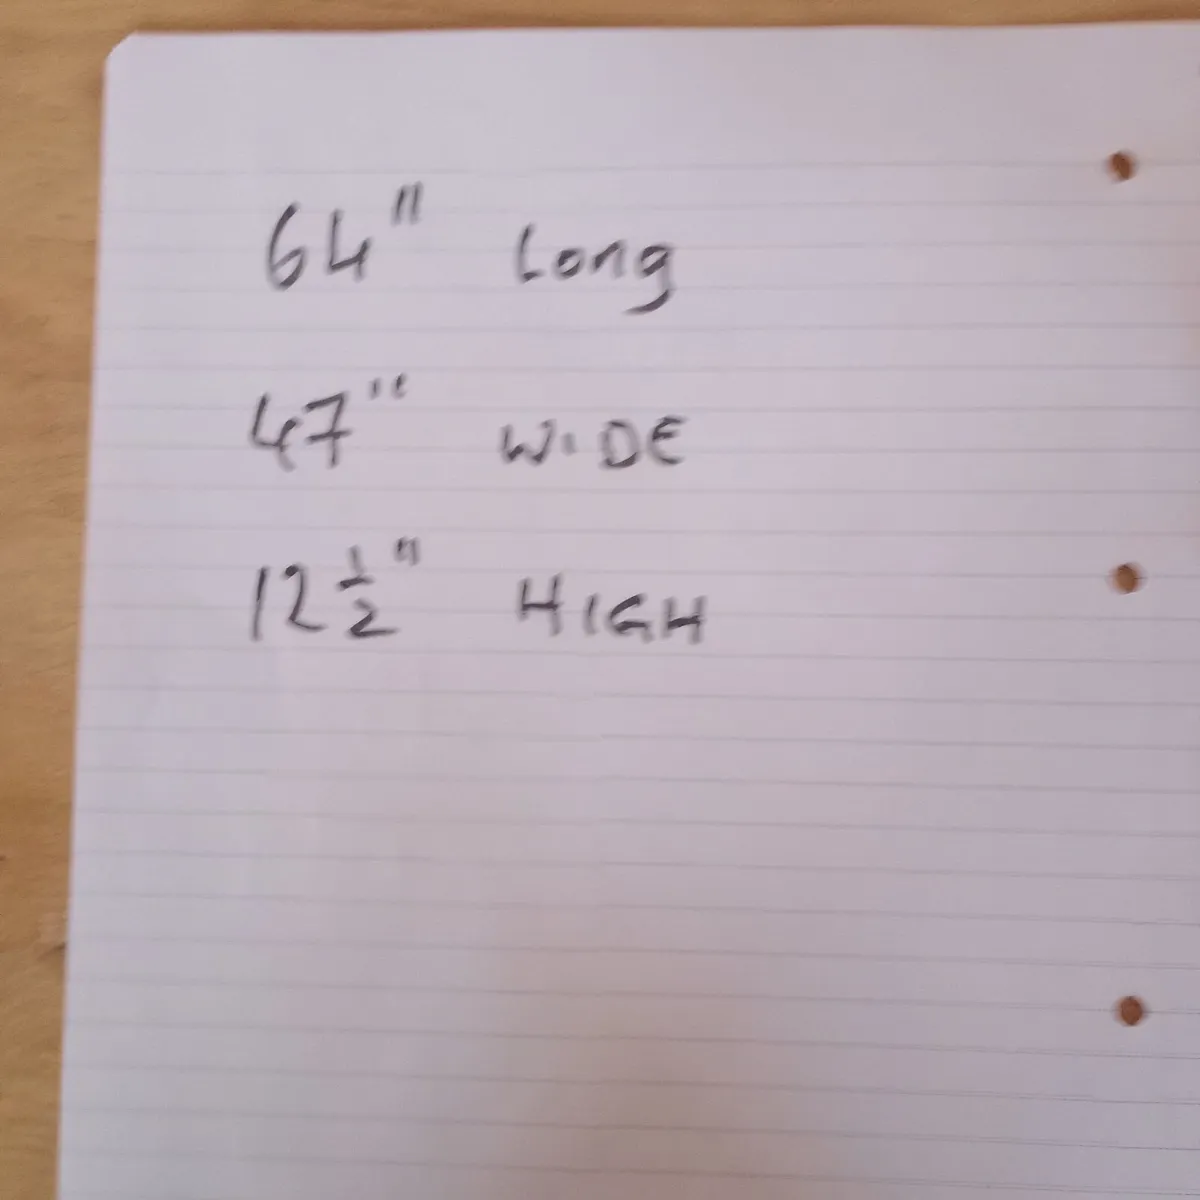 64" Long
47" WIDE
12 1/2" HIGH